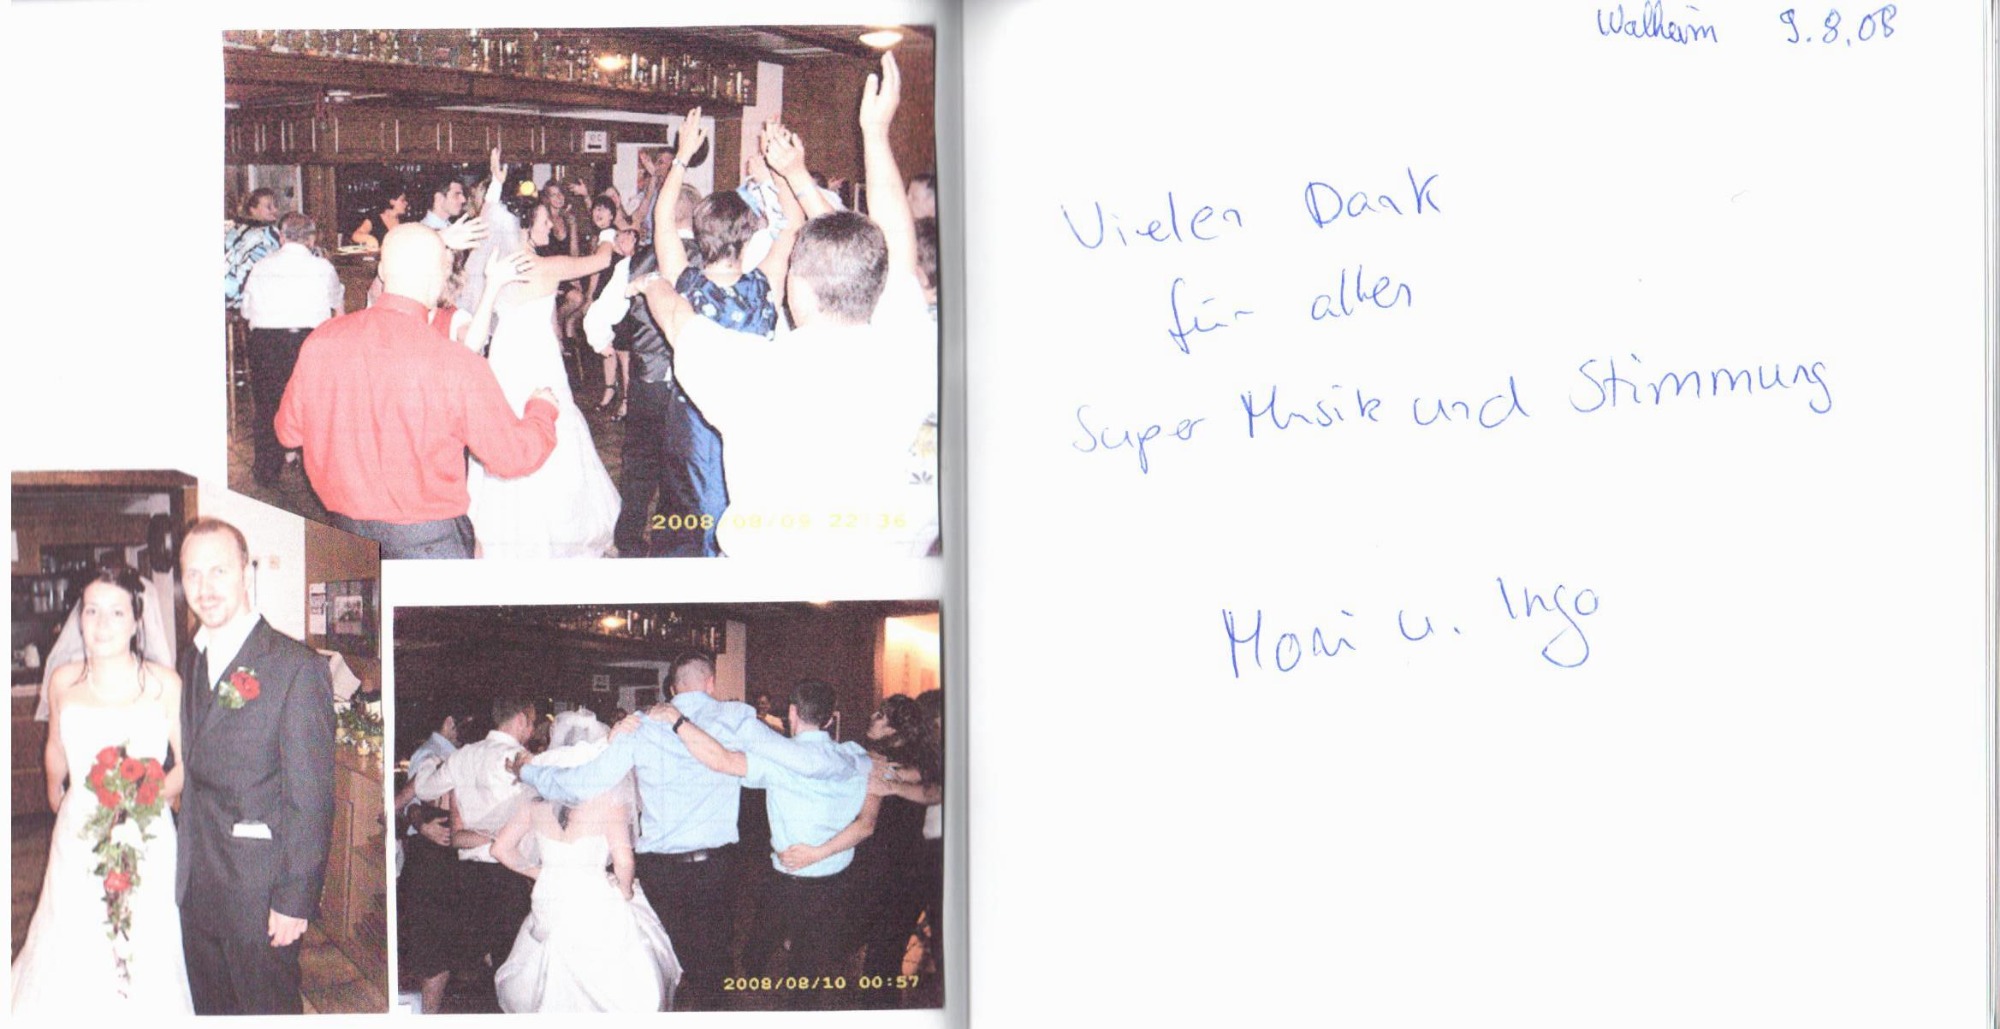 2008/08/09 22:36
2008/08/10 00:57
Walheim 9.8.08
Vielen Dank
für alles
Super Musik und Stimmung
Moni u. Ingo